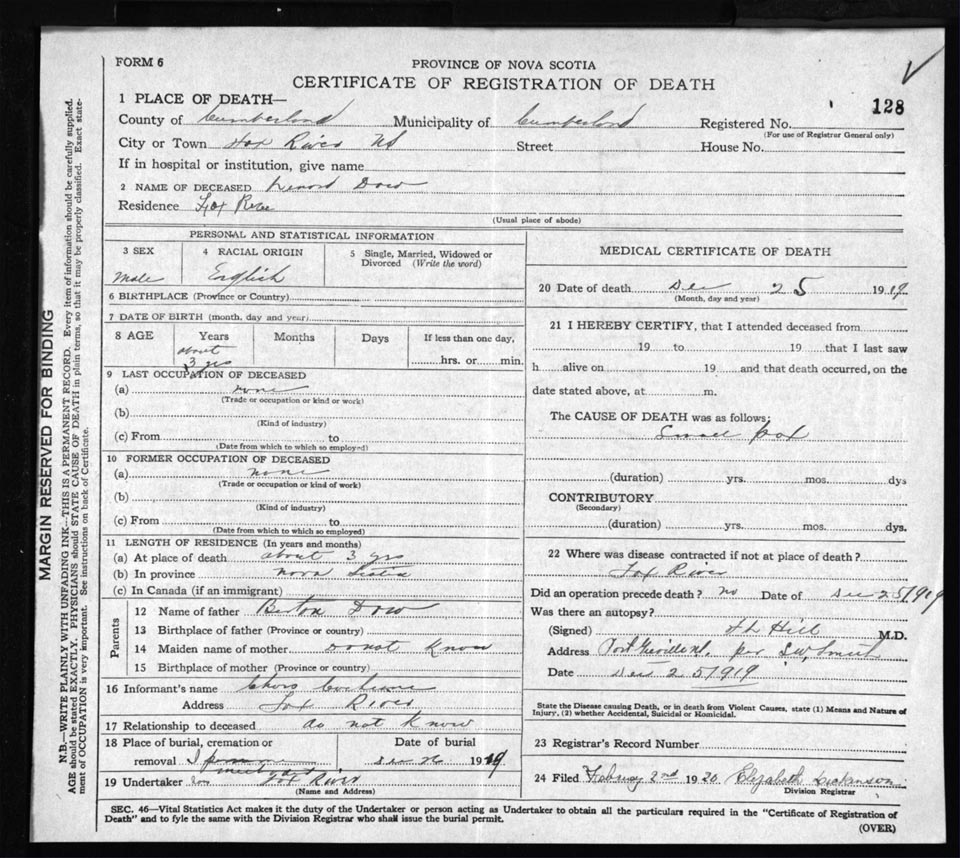 FORM 6
PROVINCE OF NOVA SCOTIA
CERTIFICATE OF REGISTRATION OF DEATH
128
1 PLACE OF DEATH—
County of Cumberland Municipality of Cumberland Registered No.
(For use of Registrar General only)
City or Town Fox River NS Street House No.
If in hospital or institution, give name
2 NAME OF DECEASED Lenord Dow
Residence Fox River
(Usual place of abode)
PERSONAL AND STATISTICAL INFORMATION
3 SEX 4 RACIAL ORIGIN 5 Single, Married, Widowed or Divorced (Write the word)
Male English
6 BIRTHPLACE (Province or Country)
7 DATE OF BIRTH (month, day and year)
8 AGE Years Months Days If less than one day,
about 3 yrs hrs. or min.
9 LAST OCCUPATION OF DECEASED
(a) none
(Trade or occupation or kind or work)
(b)
(Kind of industry)
(c) From to
(Date from which to which so employed)
10 FORMER OCCUPATION OF DECEASED
(a) none
(Trade or occupation or kind of work)
(b)
(Kind of industry)
(c) From to
(Date from which to which so employed)
11 LENGTH OF RESIDENCE (In years and months)
(a) At place of death about 3 yrs
(b) In province Nova Scotia
(c) In Canada (if an immigrant)
Parents
12 Name of father Dow
13 Birthplace of father (Province or country)
14 Maiden name of mother do not Know
15 Birthplace of mother (Province or country)
16 Informant's name
Address Fox River
17 Relationship to deceased do not Know
18 Place of burial, cremation or removal Date of burial
Dec 26 1919
19 Undertaker Fox River
(Name and Address)
MEDICAL CERTIFICATE OF DEATH
20 Date of death Dec 25 1919
(Month, day and year)
21 I HEREBY CERTIFY, that I attended deceased from
19 to 19 that I last saw
h alive on 19 and that death occurred, on the
date stated above, at m.
The CAUSE OF DEATH was as follows:
Small pox
(duration) yrs. mos. dys
CONTRIBUTORY
(Secondary)
(duration) yrs. mos. dys.
22 Where was disease contracted if not at place of death?
Fox River
Did an operation precede death? no Date of Dec 25/1919
Was there an autopsy?
(Signed) Hill M.D.
Address Port Greville N.S. per
Date Dec 25 1919
State the Disease causing Death, or in death from Violent Causes, state (1) Means and Nature of
Injury, (2) whether Accidental, Suicidal or Homicidal.
23 Registrar's Record Number
24 Filed 2nd 1920 Elizabeth Dickinson
Division Registrar
SEC. 46—Vital Statistics Act makes it the duty of the Undertaker or person acting as Undertaker to obtain all the particulars required in the "Certificate of Registration of
Death" and to fyle the same with the Division Registrar who shall issue the burial permit.
(OVER)
MARGIN RESERVED FOR BINDING
N.B.—WRITE PLAINLY WITH UNFADING INK—THIS IS A PERMANENT RECORD. Every item of information should be carefully supplied.
AGE should be stated EXACTLY. PHYSICIANS should STATE CAUSE OF DEATH in plain terms, so that it may be properly classified. Exact state-
ment of OCCUPATION is very important. See instructions on back of Certificate.